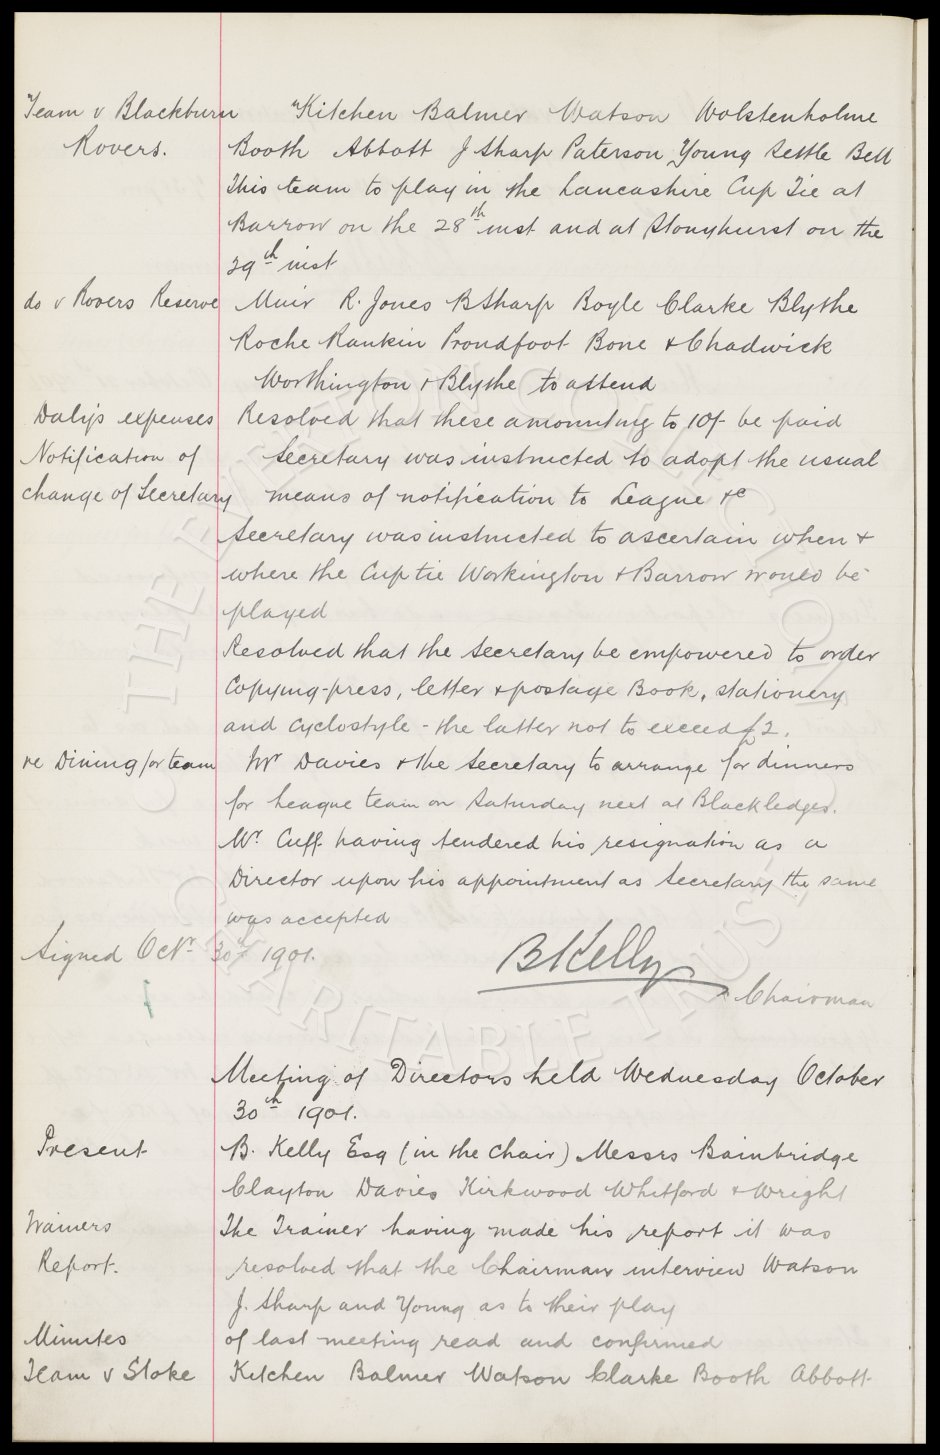 "Team v Blackburn "Kitchen Balmer Watson Wolstenholme
Rovers. Booth Abbott J Sharp Paterson Young Settle Bell
This team to play in the Lancashire Cup Tie at
Barrow on the 28th inst and at Stonyhurst on the
29th inst
do v Rovers Reserve Muir R. Jones B Sharp Boyle Clarke Blythe
Roche Rankin Proudfoot Bone & Chadwick
Worthington & Blythe to attend
Daly's expenses Resolved that these amounting to 10/- be paid
Notification of Secretary was instructed to adopt the usual
change of Secretary means of notification to League &c
Secretary was instructed to ascertain when &
where the Cup tie Workington & Barrow would be
played
Resolved that the Secretary be empowered to order
Copying-press, letter & postage Book, stationery
and cyclostyle - the latter not to exceed £2.
re Dining for team Mr Davies & the Secretary to arrange for dinners
for League team on Saturday next at Blackledges.
Mr. Cuff having tendered his resignation as a
Director upon his appointment as Secretary the same
was accepted
Signed Octr 30th 1901. B Kelly
Chairman
Meeting of Directors held Wednesday October
30th 1901.
Present B. Kelly Esq (in the chair) Messrs Bainbridge
Clayton Davies Kirkwood Whitford & Wright
Trainers The Trainer having made his report it was
Report. resolved that the Chairman interview Watson
J. Sharp and Young as to their play
Minutes of last meeting read and confirmed
Team v Stoke Kitchen Balmer Watson Clarke Booth Abbott
THE EVERTON COLLECTION
CHARITABLE TRUST